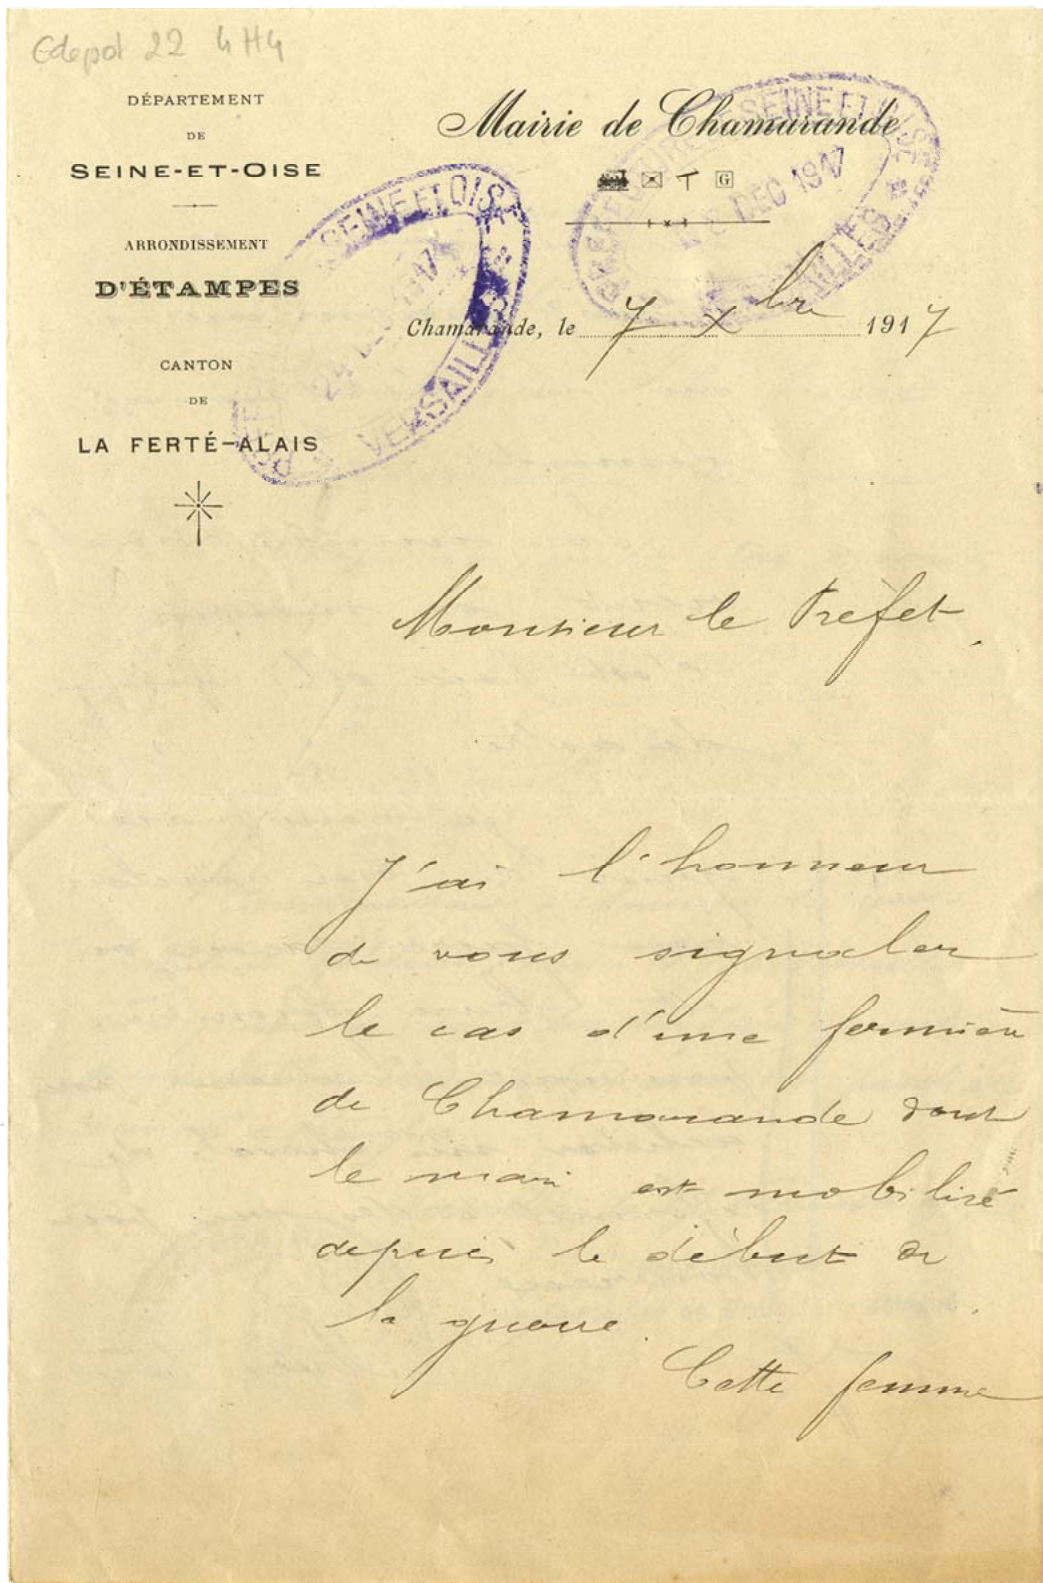 Edepot 22 4H4
DÉPARTEMENT
DE
SEINE-ET-OISE
ARRONDISSEMENT
D'ÉTAMPES
CANTON
DE
LA FERTÉ-ALAIS
Mairie de Chamarande
G
PREFECTURE DE SEINE ET OISE
DEC 1917
VERSAILLES
SEINE ET OISE
24 DEC 1917
VERSAILLES
Chamarande, le 7 Xbre 1917
Monsieur le Préfet.
J'ai l'honneur
de vous signaler
le cas d'une fermière
de Chamarande dont
le mari est mobilisé
depuis le début de
la guerre.
Cette femme